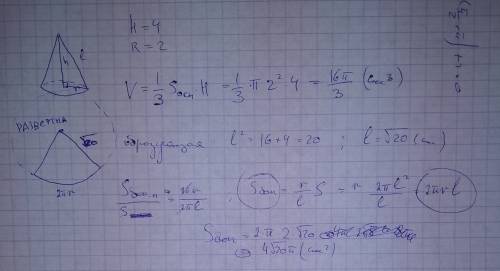 H = 4
R = 2
V = 1/3 Sосн H = 1/3 π 2² 4 = 16π/3 (см³)
l
h
r
РАЗВЕРТКА
√20
2πr
образующая l² = 16+4 = 20 ; l = √20 (см)
Sбок = r/l S = r 2πl²/l = 2πrl
Sбок = 2π 2 √20
= 4√20π (см²)